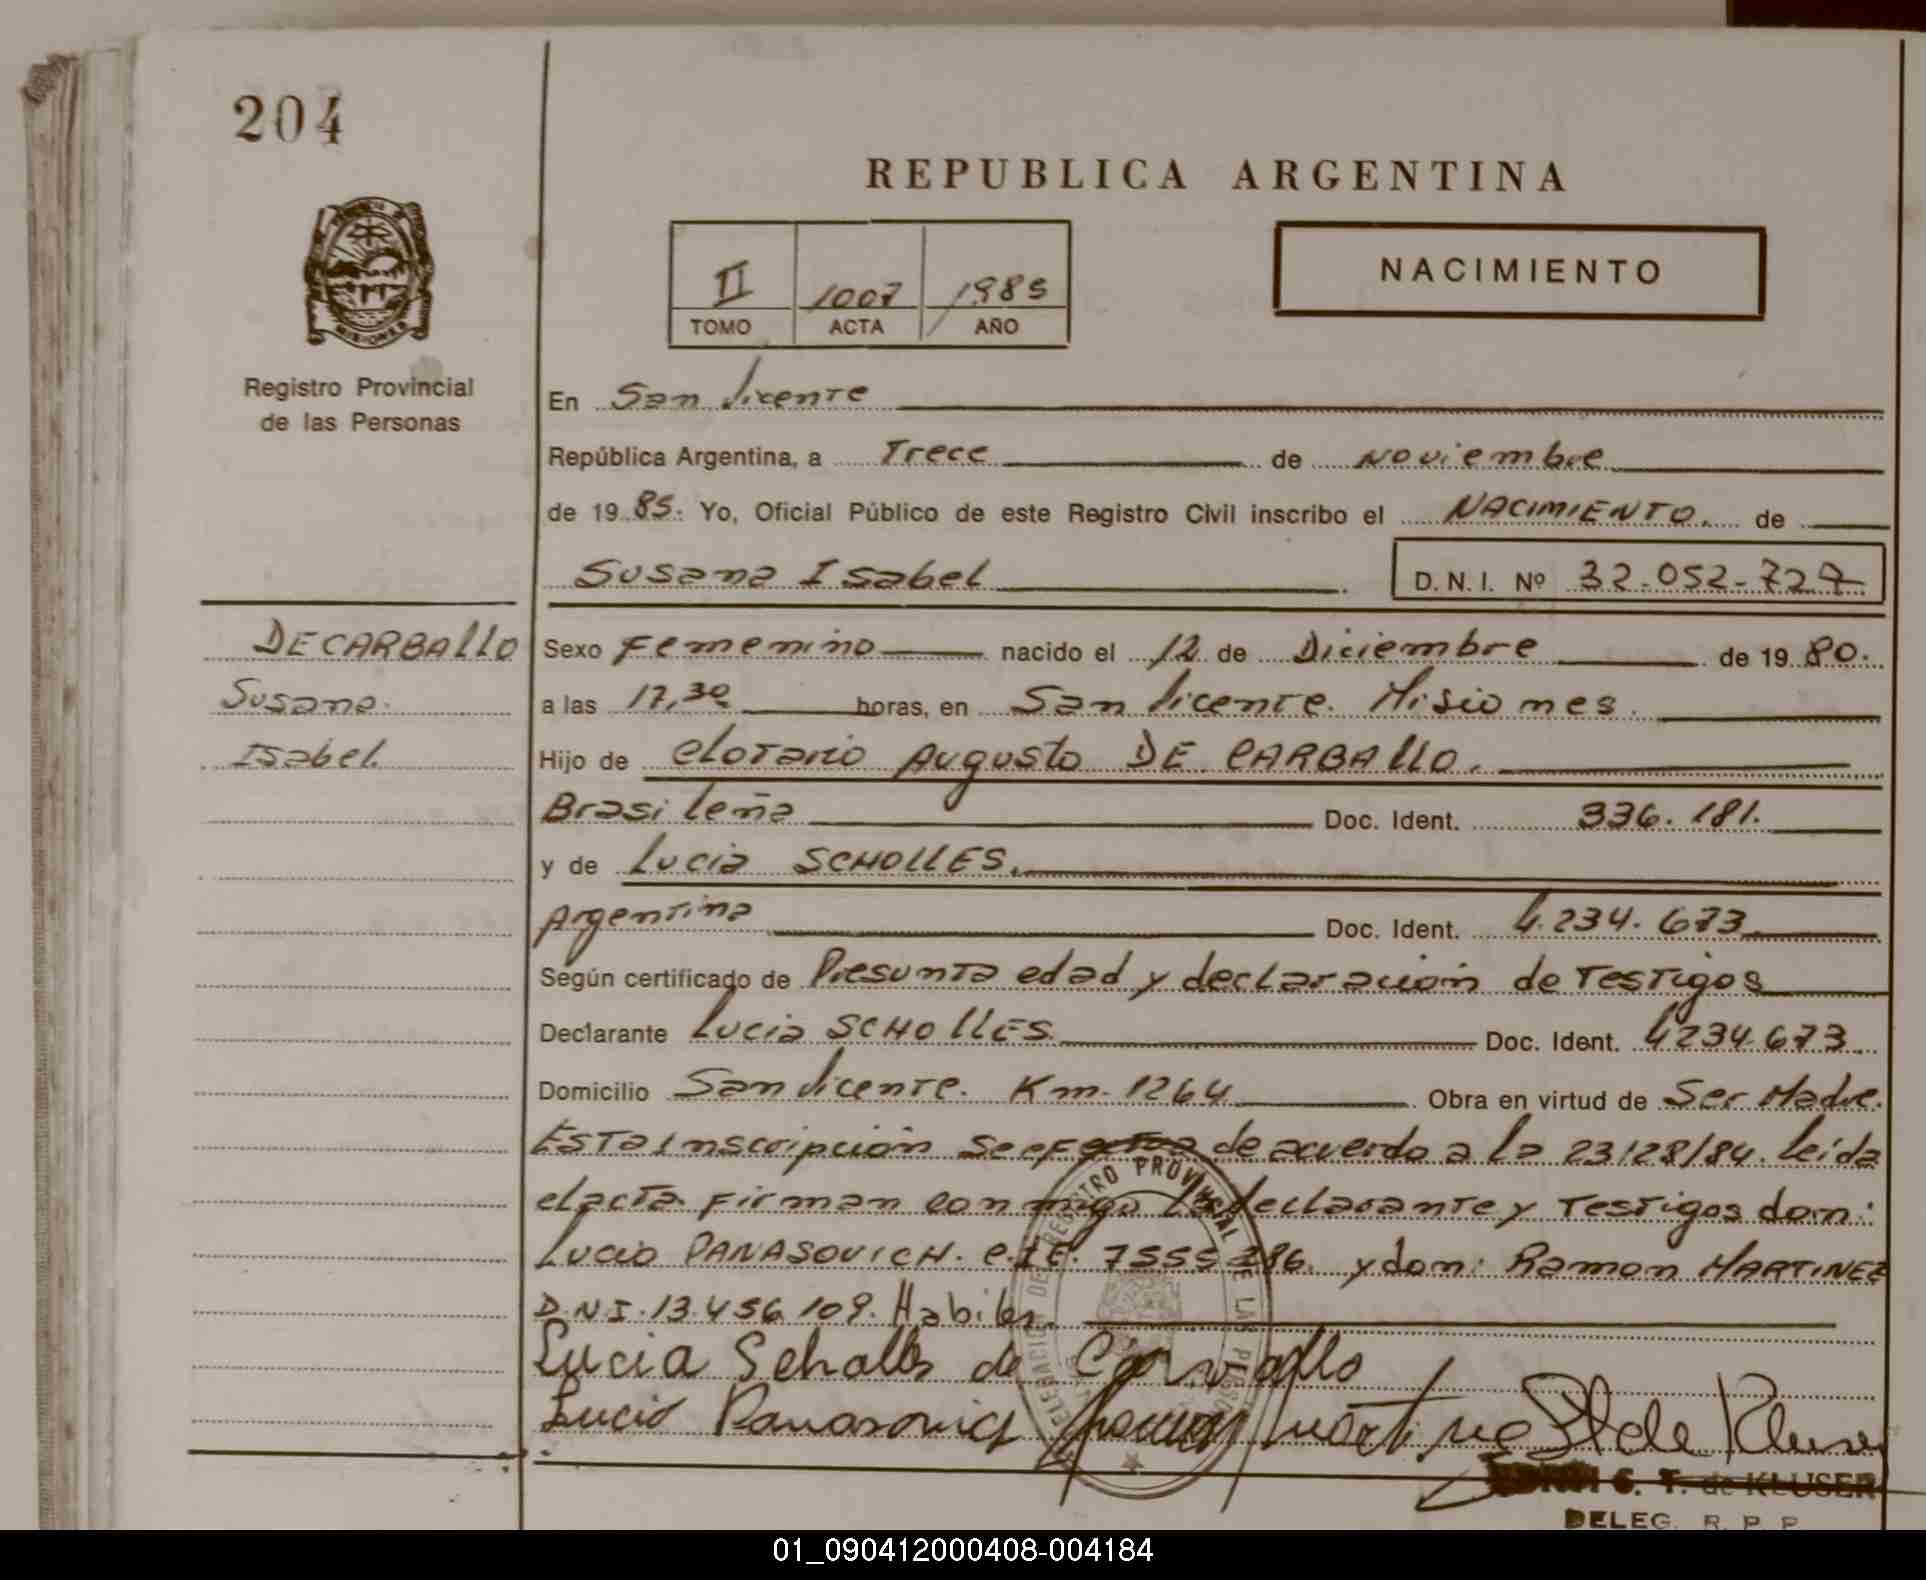 204
REPUBLICA ARGENTINA
MISIONES
Registro Provincial
de las Personas
II 1007 1985
TOMO ACTA AÑO
NACIMIENTO
En San Vicente
República Argentina, a Trece de noviembre
de 19 85. Yo, Oficial Público de este Registro Civil inscribo el NACIMIENTO. de
Susana Isabel D.N.I. Nº 32.052.727
DECARBALLO
Susana
Isabel.
Sexo Femenino nacido el 12 de Diciembre de 19 80.
a las 17,30 horas, en San Vicente. Misiones.
Hijo de Clotario Augusto DE CARBALLO.
Brasileña Doc. Ident. 336.181.
y de Lucia SCHOLLES.
Argentina Doc. Ident. 4.234.673
Según certificado de Presunta edad y declaración de Testigos
Declarante Lucia SCHOLLES Doc. Ident. 4234.673
Domicilio San Vicente. Km. 1264 Obra en virtud de Ser Madre.
Esta inscripción se efectua de acuerdo a la 23128/84. leída
el acta firman conmigo la declarante y Testigos don:
Lucio PANASOVICH. C.I.E. 7555286. y don: Ramon MARTINEZ
D.N.I. 13.456.109. Habiles.
Lucia Scholles de Carvallo
Lucio Panasovich
DELEGACION DEL REGISTRO PROVINCIAL DE LAS PERSONAS
T. de KLUSER
DELEG. R. P. P.
01_090412000408-004184